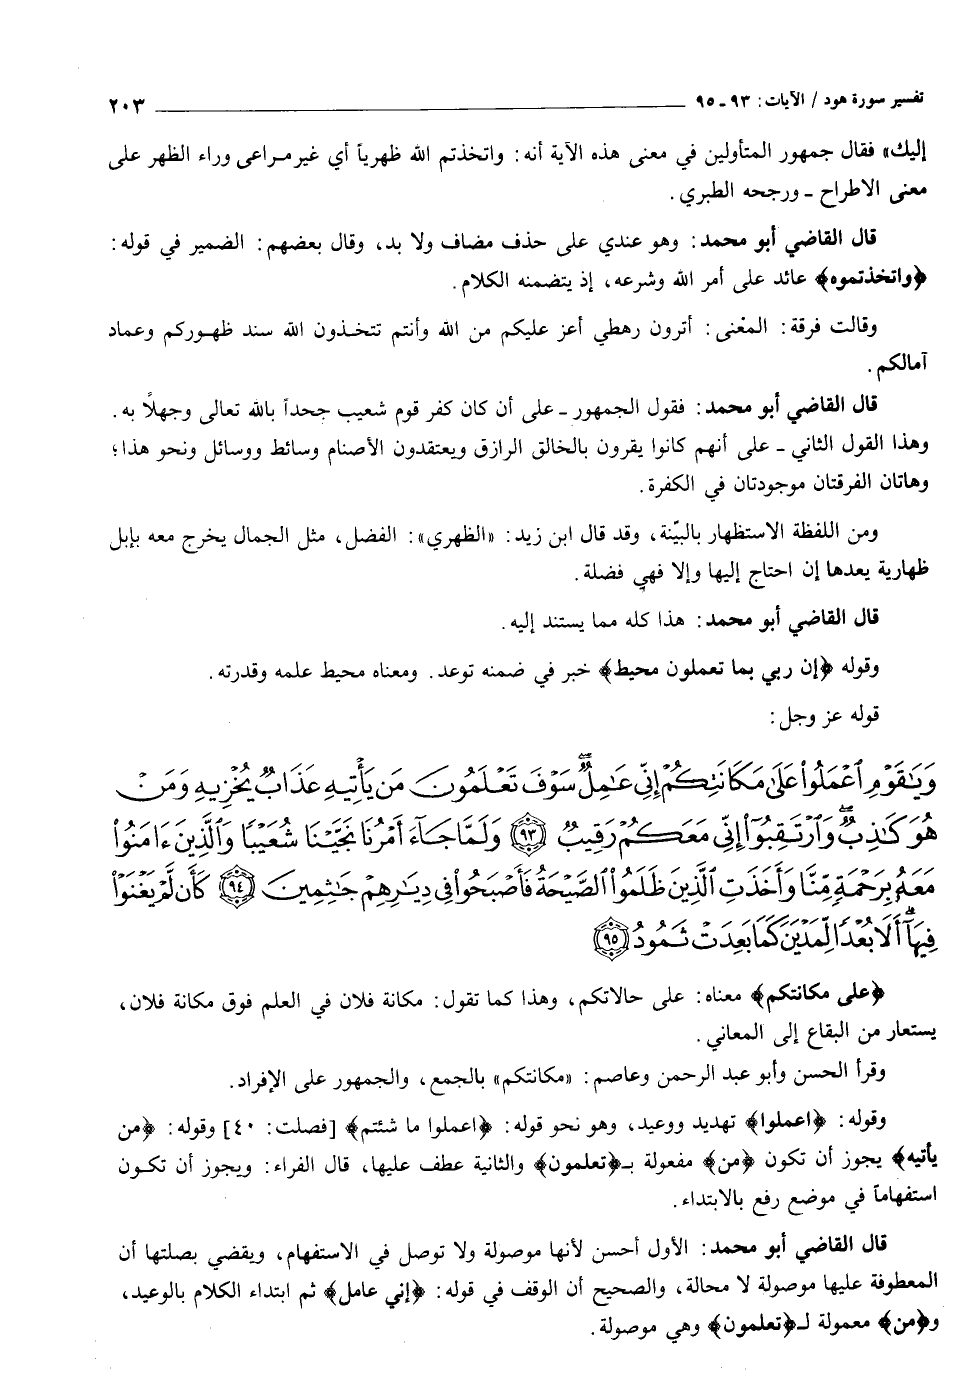 تفسير سورة هود / الآيات : ٩٣ ـ ٩٥ ٢٠٣
إليك» فقال جمهور المتأولين في معنى هذه الآية أنه : واتخذتم الله ظهرياً أي غير مراعى وراء الظهر على
معنى الاطراح ـ ورجحه الطبري .
قال القاضي أبو محمد : وهو عندي على حذف مضاف ولا بد ، وقال بعضهم : الضمير في قوله :
﴿واتخذتموه﴾ عائد على أمر الله وشرعه ، إذ يتضمنه الكلام .
وقالت فرقة : المعْنى : أترون رهطي أعز عليكم من الله وأنتم تتخذون الله سند ظهوركم وعماد
آمالكم .
قال القاضي أبو محمد : فقول الجمهور ـ على أن كان كفر قوم شعيب جحداً بالله تعالى وجهلاً به .
وهذا القول الثاني ـ على أنهم كانوا يقرون بالخالق الرازق ويعتقدون الأصنام وسائط ووسائل ونحو هذا ؛
وهاتان الفرقتان موجودتان في الكفرة .
ومن اللفظة الاستظهار بالبيّنة ، وقد قال ابن زيد : «الظهري» : الفضل ، مثل الجمال يخرج معه بإبل
ظهارية يعدها إن احتاج إليها وإلا فهي فضلة .
قال القاضي أبو محمد : هذا كله مما يستند إليه .
وقوله ﴿إن ربي بما تعملون محيط﴾ خبر في ضمنه توعد . ومعناه محيط علمه وقدرته .
قوله عز وجل :
وَيَٰقَوْمِ ٱعْمَلُوا۟ عَلَىٰ مَكَانَتِكُمْ إِنِّى عَٰمِلٌ ۖ سَوْفَ تَعْلَمُونَ مَن يَأْتِيهِ عَذَابٌ يُخْزِيهِ وَمَنْ
هُوَ كَٰذِبٌ ۖ وَٱرْتَقِبُوٓا۟ إِنِّى مَعَكُمْ رَقِيبٌ ﴿٩٣﴾ وَلَمَّا جَآءَ أَمْرُنَا نَجَّيْنَا شُعَيْبًا وَٱلَّذِينَ ءَامَنُوا۟
مَعَهُۥ بِرَحْمَةٍ مِّنَّا وَأَخَذَتِ ٱلَّذِينَ ظَلَمُوا۟ ٱلصَّيْحَةُ فَأَصْبَحُوا۟ فِى دِيَٰرِهِمْ جَٰثِمِينَ ﴿٩٤﴾ كَأَن لَّمْ يَغْنَوْا۟
فِيهَآ ۗ أَلَا بُعْدًا لِّمَدْيَنَ كَمَا بَعِدَتْ ثَمُودُ ﴿٩٥﴾
﴿على مكانتكم﴾ معناه : على حالاتكم ، وهذا كما تقول : مكانة فلان في العلم فوق مكانة فلان ،
يستعار من البقاع إلى المعاني .
وقرأ الحسن وأبو عبد الرحمن وعاصم : «مكانتكم» بالجمع ، والجمهور على الإفراد .
وقوله : ﴿اعملوا﴾ تهديد ووعيد ، وهو نحو قوله : ﴿اعملوا ما شئتم﴾ [فصلت : ٤٠] وقوله : ﴿من
يأتيه﴾ يجوز أن تكون ﴿من﴾ مفعولة بـ﴿تعلمون﴾ والثانية عطف عليها ، قال الفراء : ويجوز أن تكون
استفهاماً في موضع رفع بالابتداء .
قال القاضي أبو محمد : الأول أحسن لأنها موصولة ولا توصل في الاستفهام ، ويقضي بصلتها أن
المعطوفة عليها موصولة لا محالة ، والصحيح أن الوقف في قوله : ﴿إني عامل﴾ ثم ابتداء الكلام بالوعيد ،
و﴿من﴾ معمولة لـ﴿تعلمون﴾ وهي موصولة .